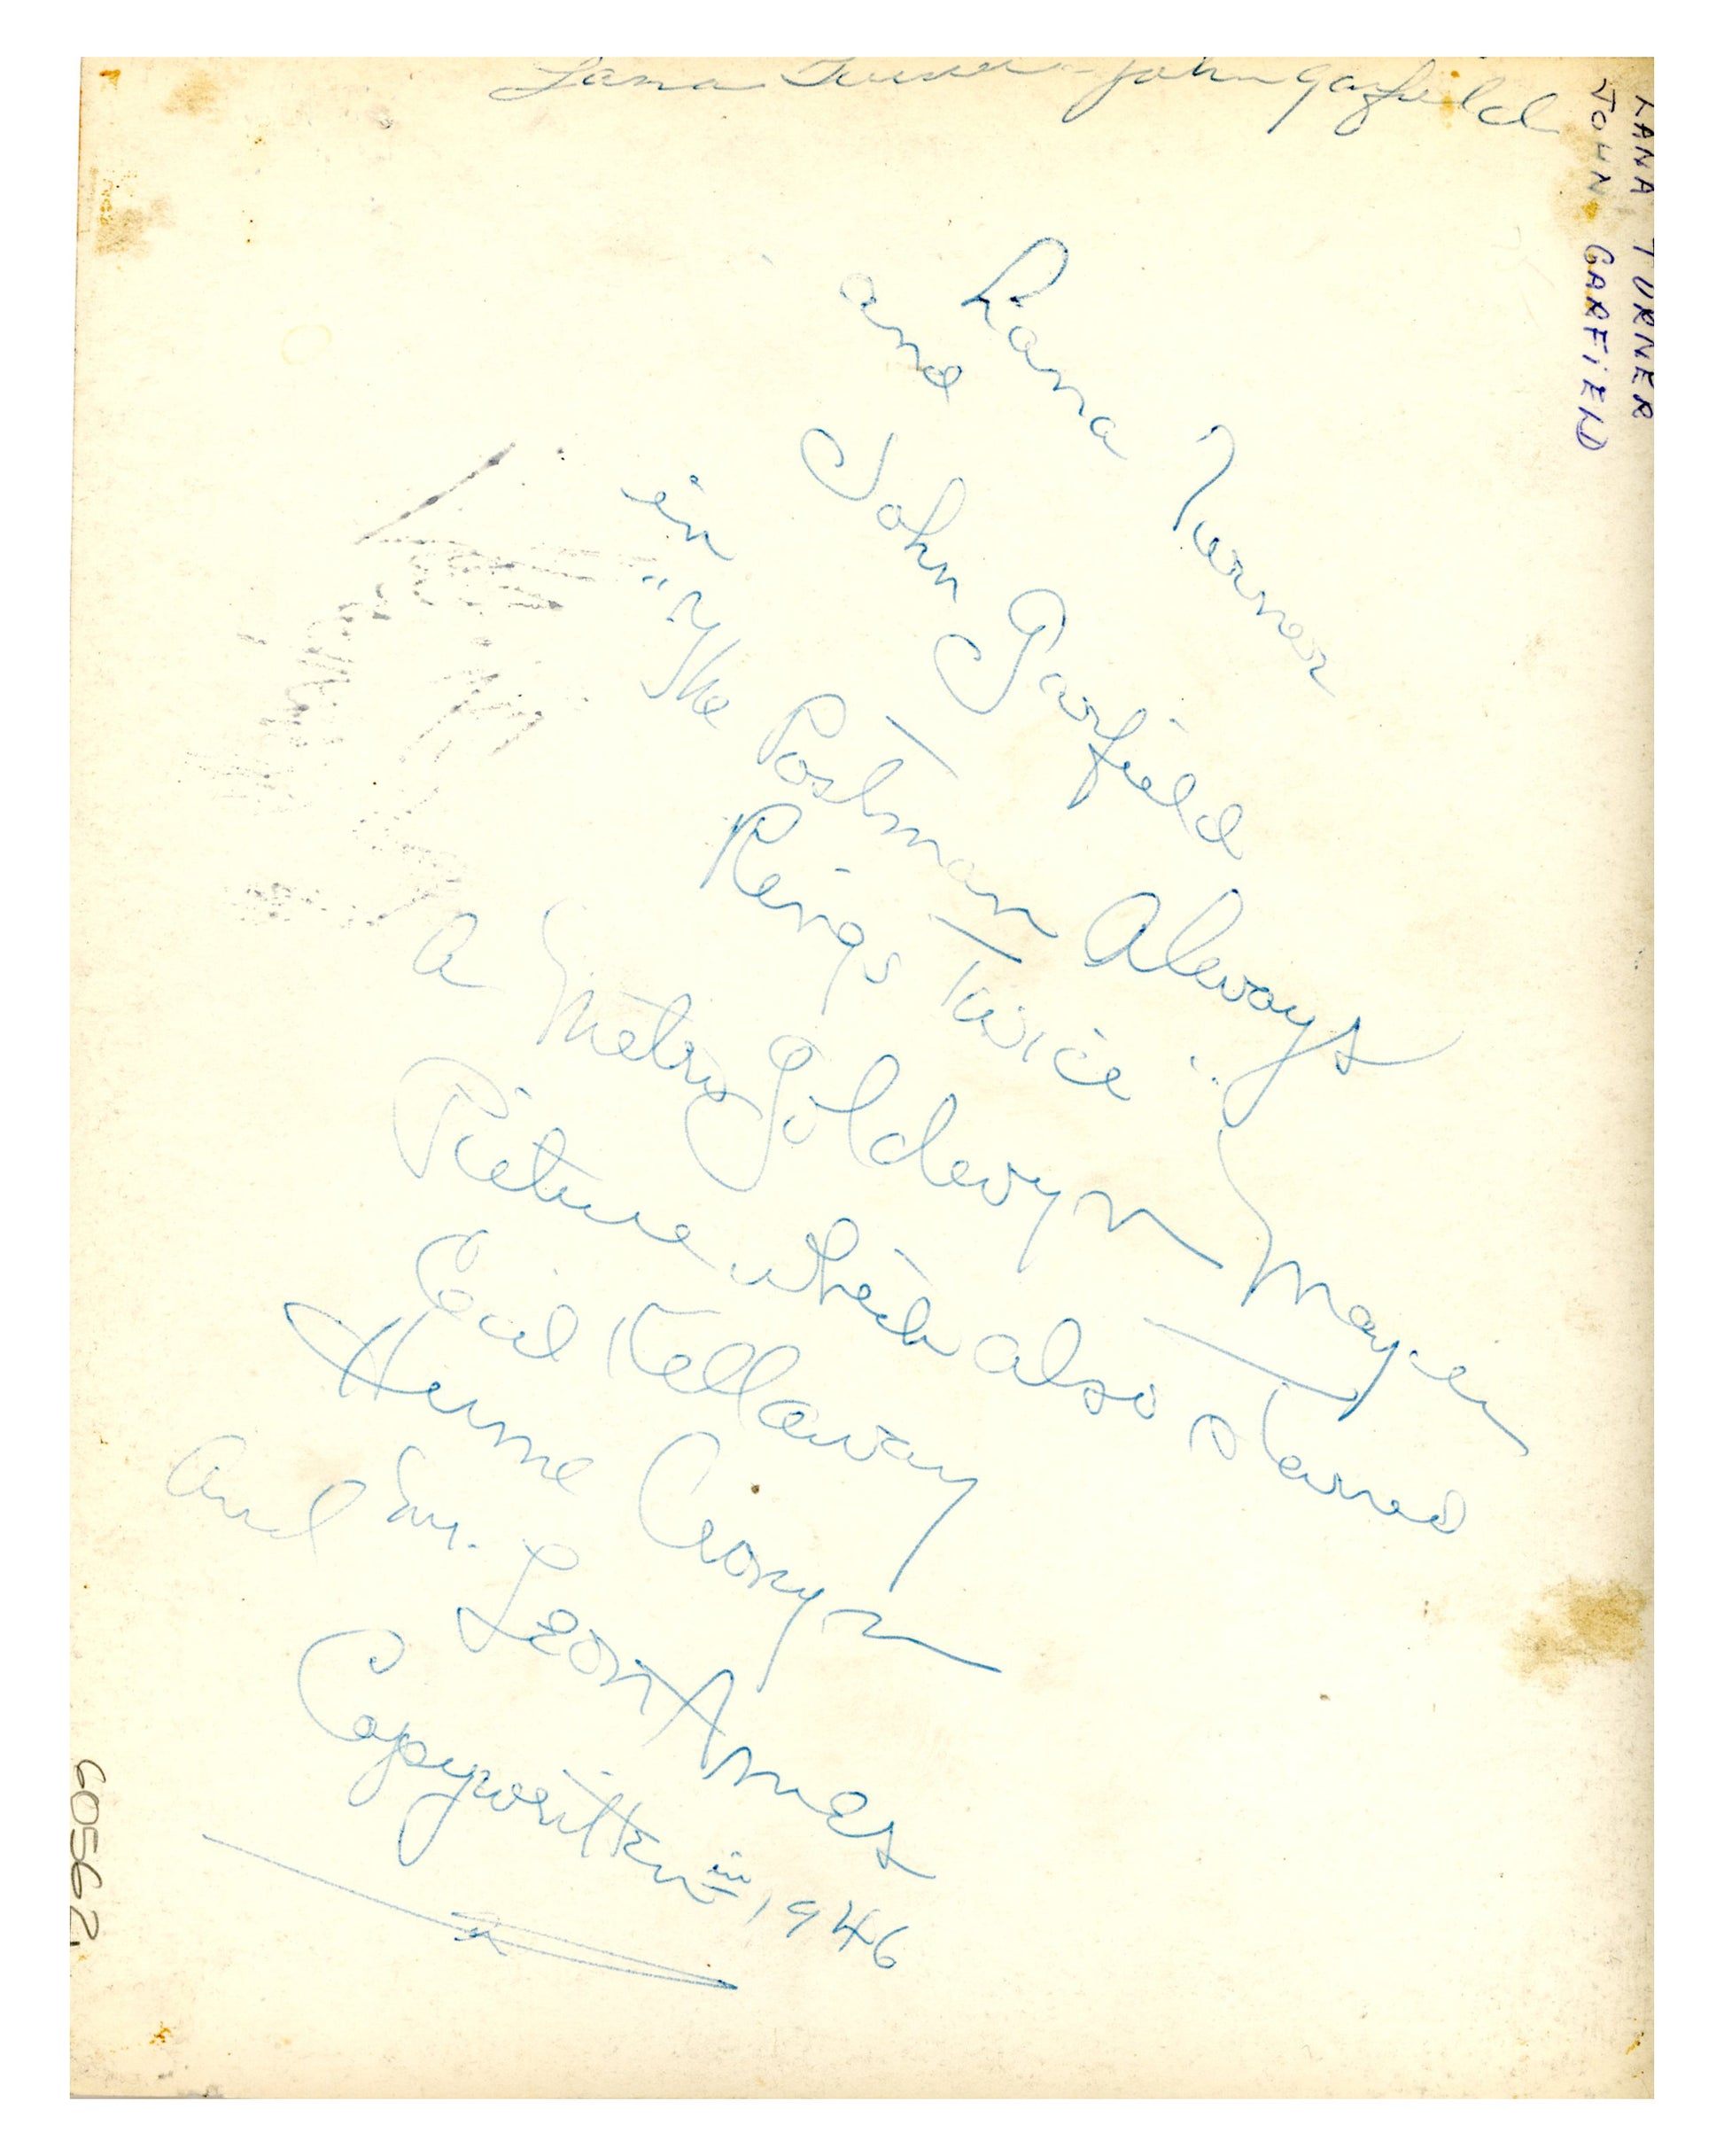 Lana Turner - John Garfield
LANA TURNER
JOHN GARFIELD
Lana Turner
and John Garfield
in "The Postman Always
Rings Twice"
A Metro Goldwyn Mayer
Picture which also starred
Cecil Kellaway
Hume Cronyn
and Mr. Leon Ames
Copywritten in 1946